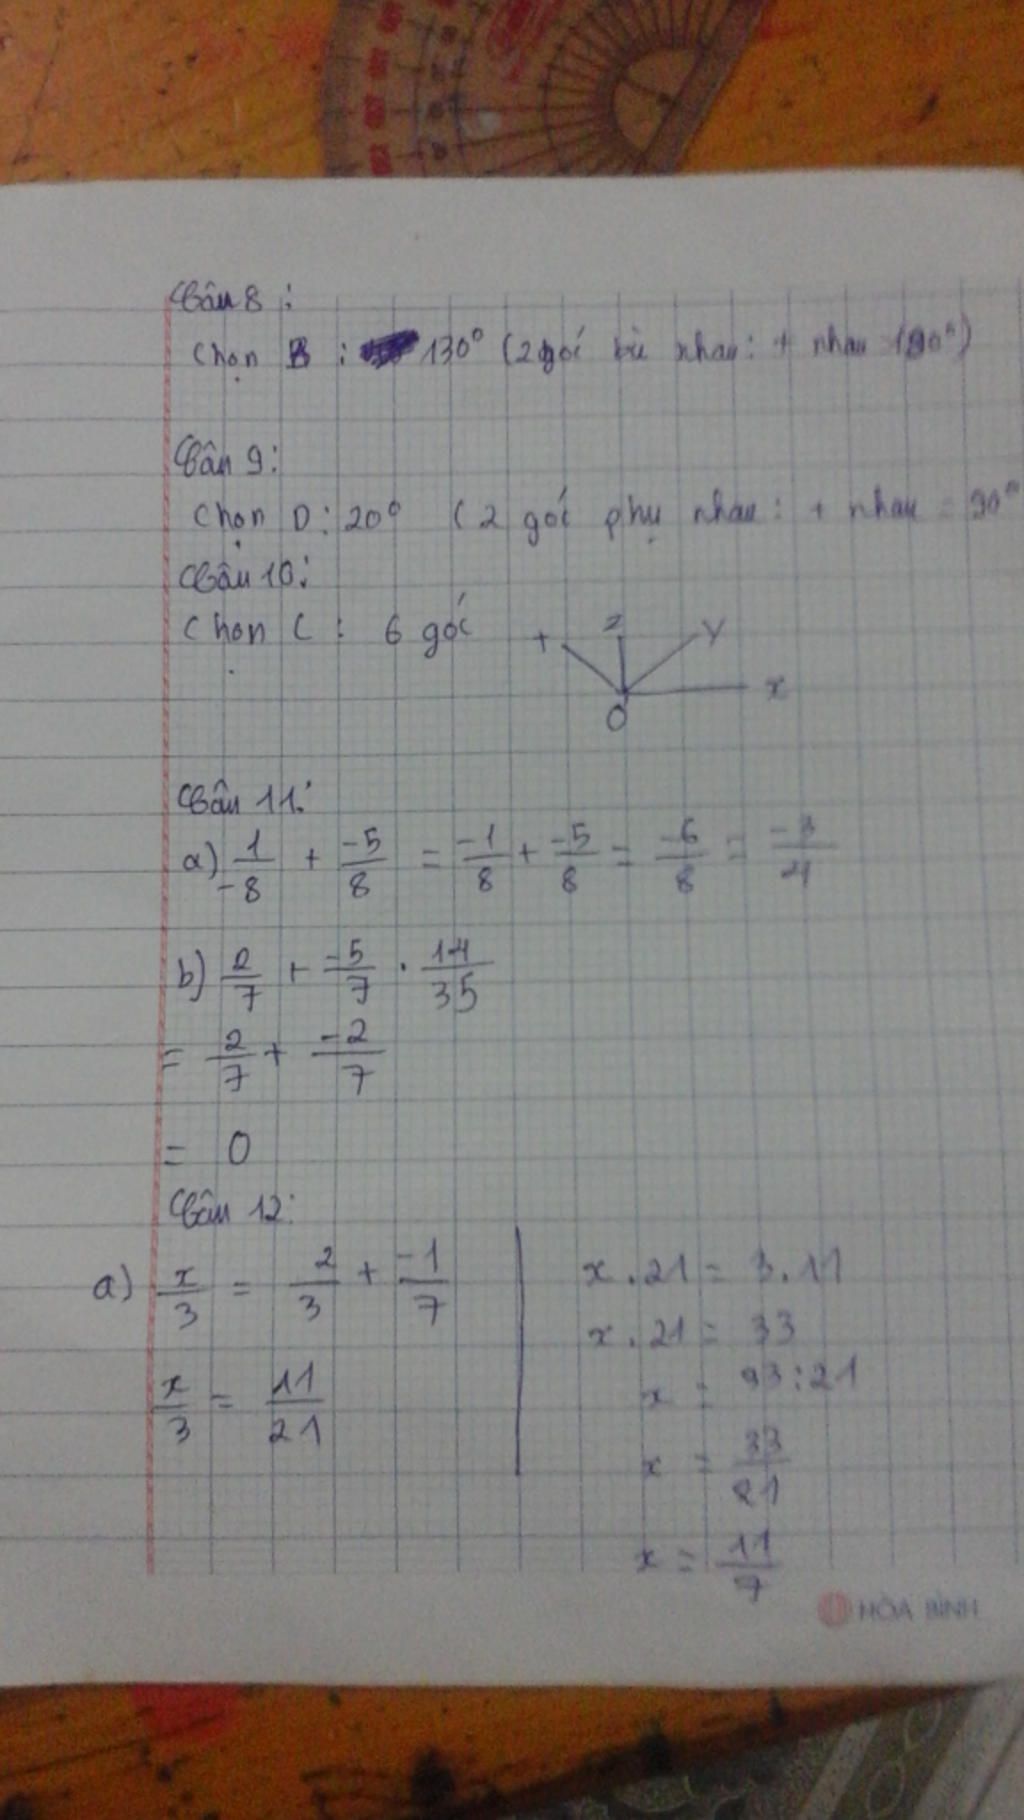 Câu 8:
Chọn B: 130° (2 góc bù nhau: + nhau 180°)
Câu 9:
Chọn D: 20° (2 góc phụ nhau: + nhau = 90°
Câu 10:
Chọn C: 6 góc
t z y
x
O
Câu 11:
a) 1/-8 + -5/8 = -1/8 + -5/8 = -6/8 = -3/4
b) 2/7 + -5/7 . 14/35
= 2/7 + -2/7
= 0
Câu 12:
a) x/3 = 2/3 + -1/7
x/3 = 11/21
x . 21 = 3 . 11
x . 21 = 33
x = 33 : 21
x = 33/21
x = 11/7
HÒA BÌNH